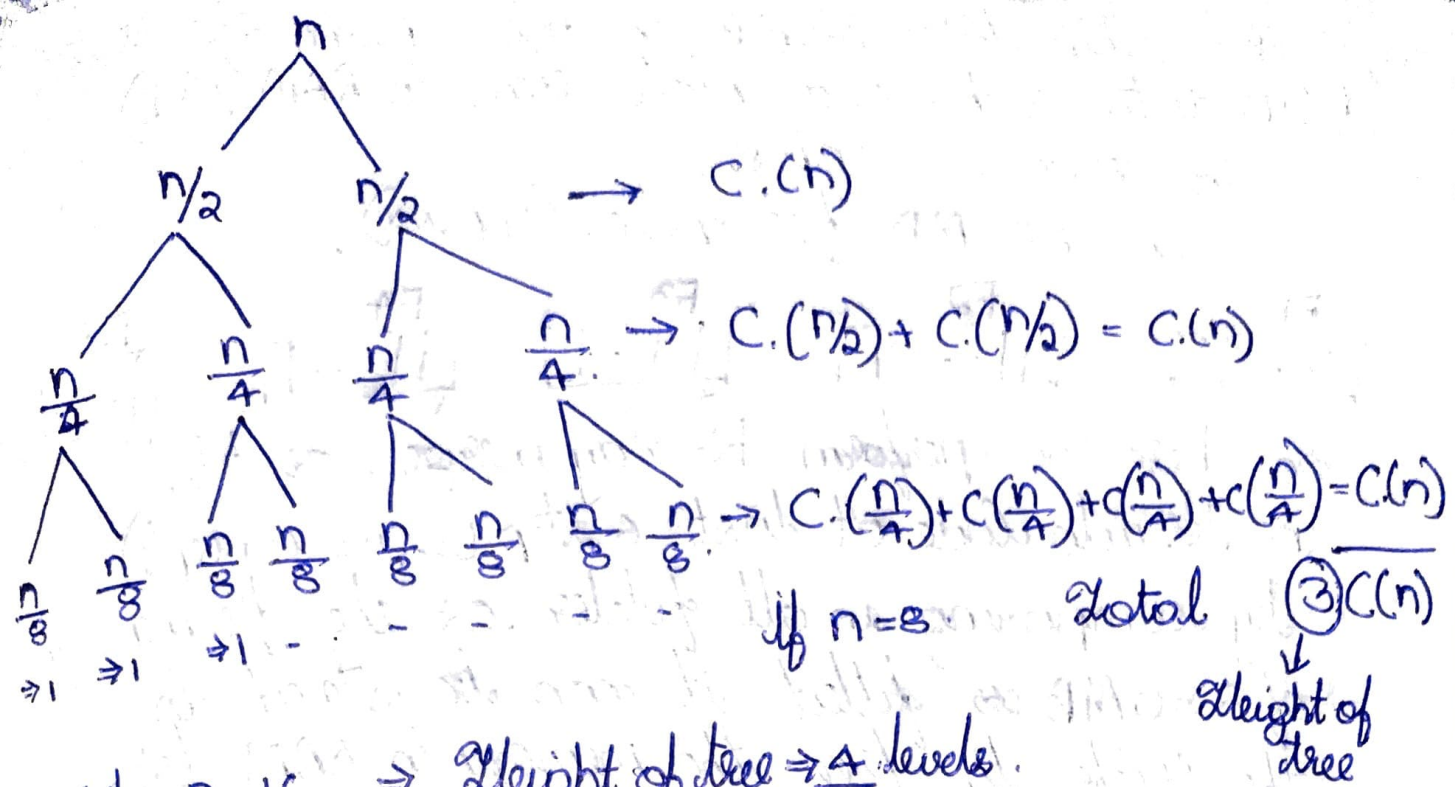 n
n/2 n/2 → C.(n)
n/4 n/4 n/4 n/4 → C.(n/2) + C.(n/2) = C.(n)
n/8 n/8 n/8 n/8 n/8 n/8 n/8 n/8 → C.(n/4) + C(n/4) + C(n/4) + C(n/4) = C.(n)
⇒1 ⇒1 ⇒1 - - - - -
if n=8 Total 3 C(n)
↓
Height of
tree
⇒ Height of tree ⇒ 4 levels.